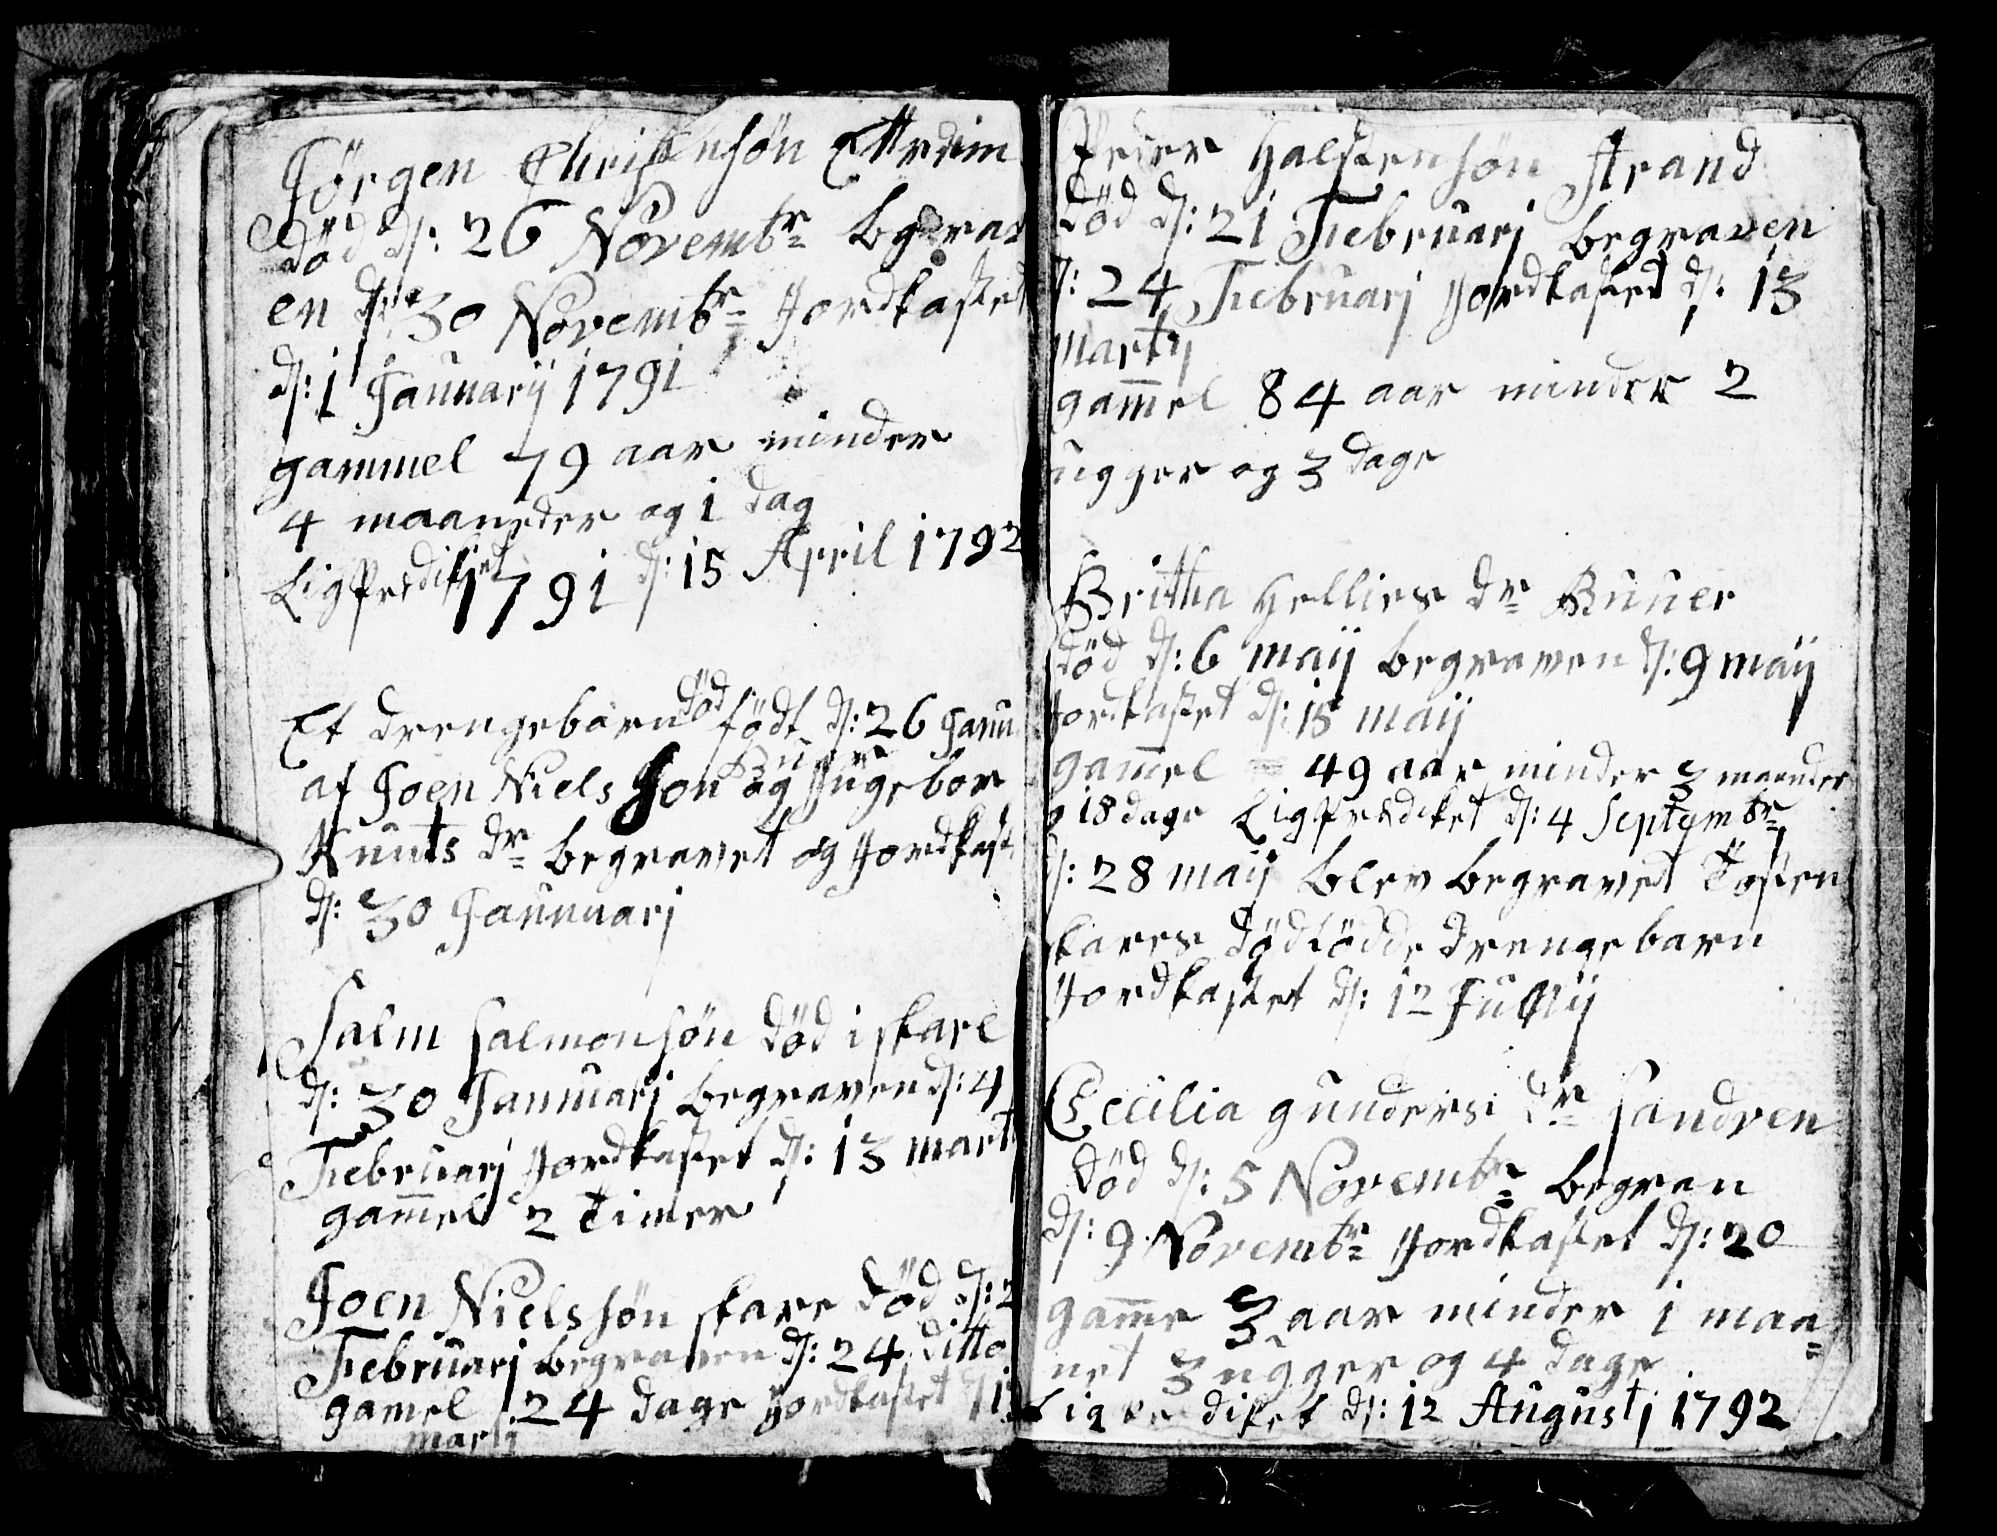 Jörgen Christensön Ettrdim
död ds: 26 Novembr begrav
en ds: 30 Novembr Jordkastet
ds: 1 Januarij 1791
gammel 79 aar minder
4 maaneder og 1 dag
Ligprediket ds: 15 April 1792
1791
Et drengebarn död födt ds: 26 Janu
af Joen Niels Son og Jngebor
Buer
Knuts dr begravet og Jordkast
ds: 30 Januuarj
Salm Salmonsön död i skare
ds: 30 Januuarj begraven ds: 4
Febrüarj Jordkastet ds: 13 mart
gam̅el 2 timer
Joen Nielssön skare död ds: 2
Februarj begraven ds: 24 ditto
gamel 24 dage Jordkastet ds 13
martj
Peder Halstensön Strand
död ds: 21 Februarj begraven
ds: 24 Februarj Jordkasted ds: 13
martij
gam̅el 84 aar minder 2
ugger og 3 dage
Britha Hellies dr Buuer
död ds: 6 maij begraven ds: 9 maij
Jordkastet ds: 15 maij
gam̅el 49 aar minder 3 maander
og 18 dage Ligprediket ds: 4 Septembr
ds: 28 maij blev begravet Tosten
skares dödfödde drengebarn
Jordkastet ds: 12 Jullij
Cecilia gunders dr Sandven
död ds: 5 Novembr begraven
ds: 9 Novembr Jordkastet ds: 20
gam̅e 3 aar minder 1 maa=
net 3 ugger og 4 dage
Ligprediket ds: 12 Augustj 1792